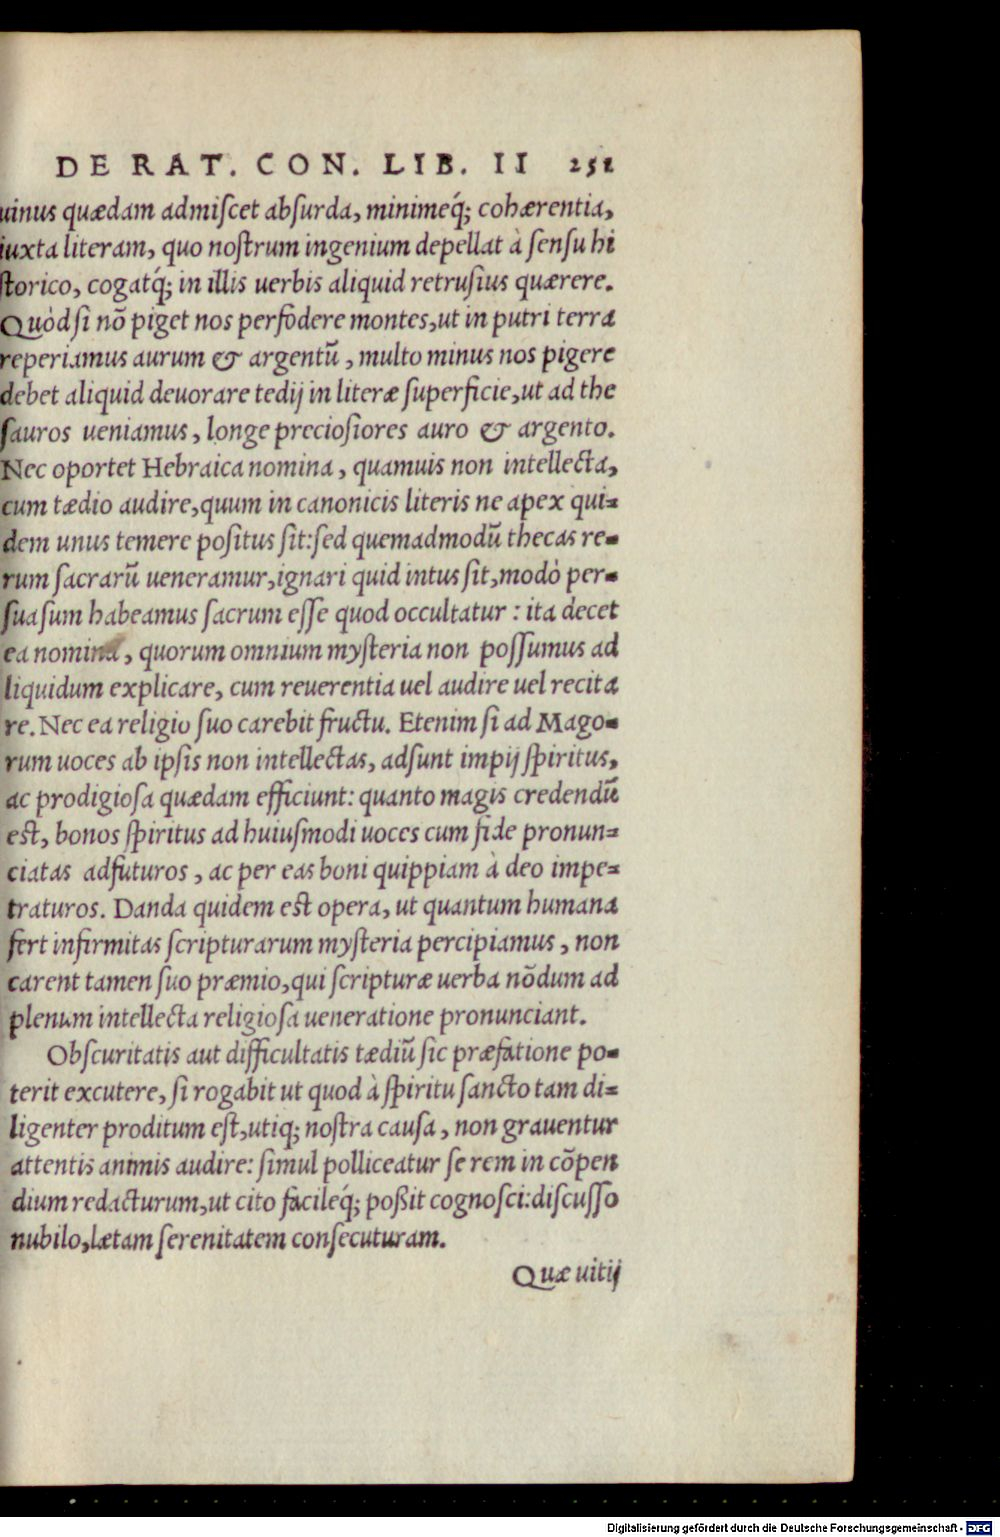 DE RAT. CON. LIB. II 251
uinus quædam admiscet absurda, minimeq́; cohærentia,
iuxta literam, quo nostrum ingenium depellat à sensu hi
storico, cogatq́; in illis uerbis aliquid retrusius quærere.
Quòd si nō piget nos perfodere montes, ut in putri terra
reperiamus aurum & argentū, multo minus nos pigere
debet aliquid deuorare tedij in literæ superficie, ut ad the
sauros ueniamus, longe preciosiores auro & argento.
Nec oportet Hebraica nomina, quamuis non intellecta,
cum tædio audire, quum in canonicis literis ne apex qui-
dem unus temere positus sit: sed quemadmodū thecas re-
rum sacrarū ueneramur, ignari quid intus sit, modò per-
suasum habeamus sacrum esse quod occultatur: ita decet
ea nomina, quorum omnium mysteria non possumus ad
liquidum explicare, cum reuerentia uel audire uel recita
re. Nec ea religio suo carebit fructu. Etenim si ad Mago-
rum uoces ab ipsis non intellectas, adsunt impij spiritus,
ac prodigiosa quædam efficiunt: quanto magis credendū
est, bonos spiritus ad huiusmodi uoces cum fide pronun-
ciatas adfuturos, ac per eas boni quippiam à deo impe-
traturos. Danda quidem est opera, ut quantum humana
fert infirmitas scripturarum mysteria percipiamus, non
carent tamen suo præmio, qui scripturæ uerba nōdum ad
plenum intellecta religiosa ueneratione pronunciant.
Obscuritatis aut difficultatis tædiū sic præfatione po-
terit excutere, si rogabit ut quod à spiritu sancto tam di-
ligenter proditum est, utiq; nostra causa, non grauentur
attentis animis audire: simul polliceatur se rem in cōpen
dium redacturum, ut cito facileq́; poßit cognosci: discusso
nubilo, lætam serenitatem consecuturam.
Quæ uitij
Digitalisierung gefördert durch die Deutsche Forschungsgemeinschaft - DFG